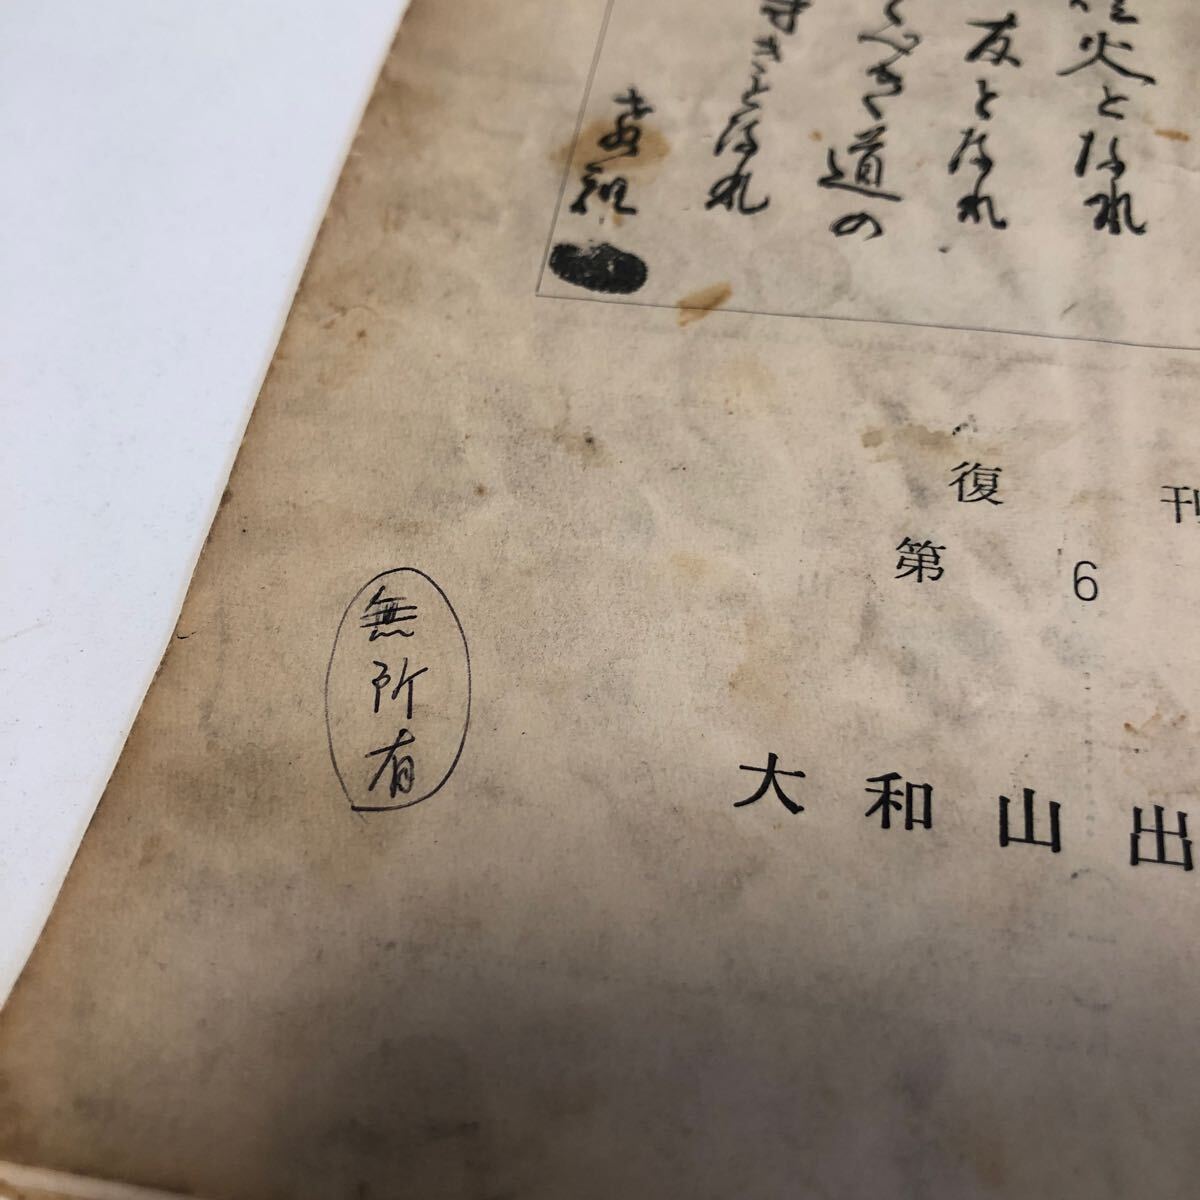 火となれ
友となれ
べき道の
すきとなれ
教祖
復刊
第6
大和山出
無所有